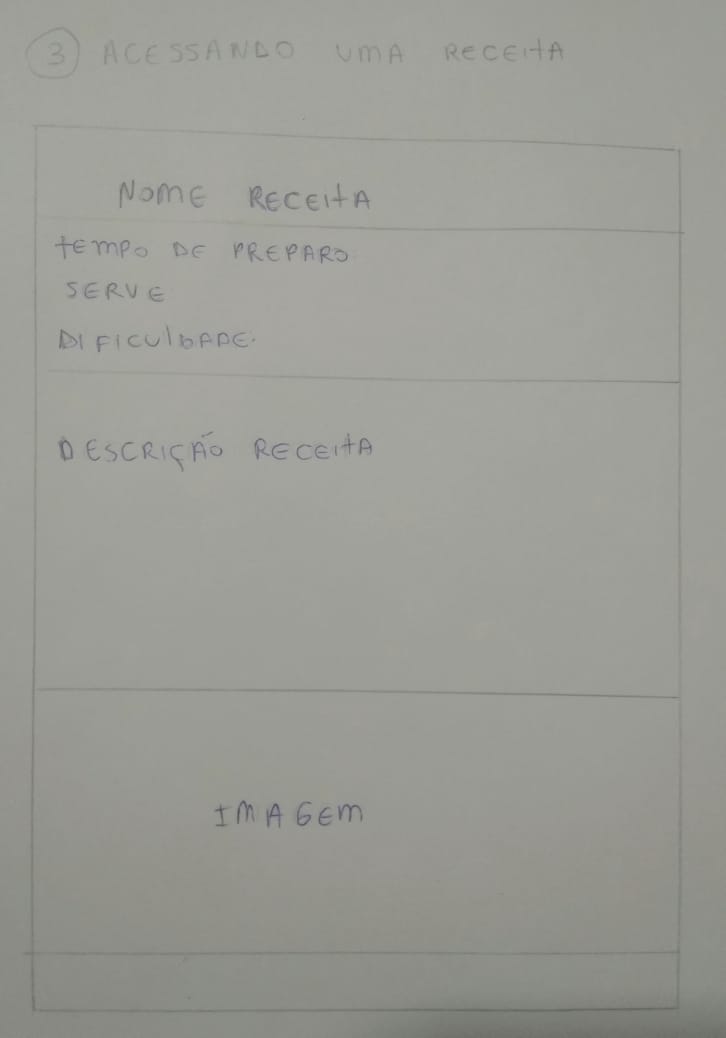 3 ACESSANDO UMA RECEITA
NOME RECEITA
TEMPO DE PREPARO
SERVE
DIFICULDADE.
DESCRIÇÃO RECEITA
IMAGEM